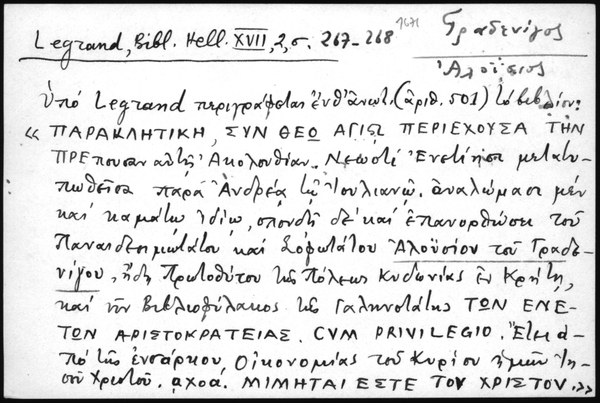 Legrand, Bibl. Hell. XVII, 2, σ. 267-268
1671
Γραδενίγος
Ἀλοΐσιος
Ὑπὸ Legrand περιγράφεται ἐνθ' ἀνωτ. (ἀριθ. 501) τὸ βιβλίον:
« ΠΑΡΑΚΛΗΤΙΚΗ, ΣΥΝ ΘΕΩ ΑΓΙΩ ΠΕΡΙΕΧΟΥΣΑ ΤΗΝ
ΠΡΕπουσαν αὐτῆς Ἀκολουθίαν. Νεωστὶ Ἐνετίησι μετατυ-
πωθεῖσα παρὰ Ἀνδρέᾳ τῷ Ἰουλιανῷ. ἀναλώμασι μὲν
καὶ καμάτῳ ἰδίῳ, σπουδῇ δὲ καὶ ἐπανορθώσει τοῦ
Παναιδεσιμωτάτου καὶ Σοφωτάτου Ἀλοϋσίου τοῦ Γραδε-
νίγου, ἤδη Πρωτοθύτου τῆς Πόλεως Κυδωνίας ἐν Κρήτῃ,
καὶ νῦν Βιβλιοφύλακος τῆς Γαληνοτάτης ΤΩΝ ΕΝΕ-
ΤΩΝ ΑΡΙΣΤΟΚΡΑΤΕΙΑΣ. CVM PRIVILEGIO. Ἔτει ἀ-
πὸ τῆς ἐνσάρκου Οἰκονομίας τοῦ Κυρίου ἡμῶν Ἰη-
σοῦ Χριστοῦ. αχοα. ΜΙΜΗΤΑΙ ΕΣΤΕ ΤΟΥ ΧΡΙΣΤΟΥ.»